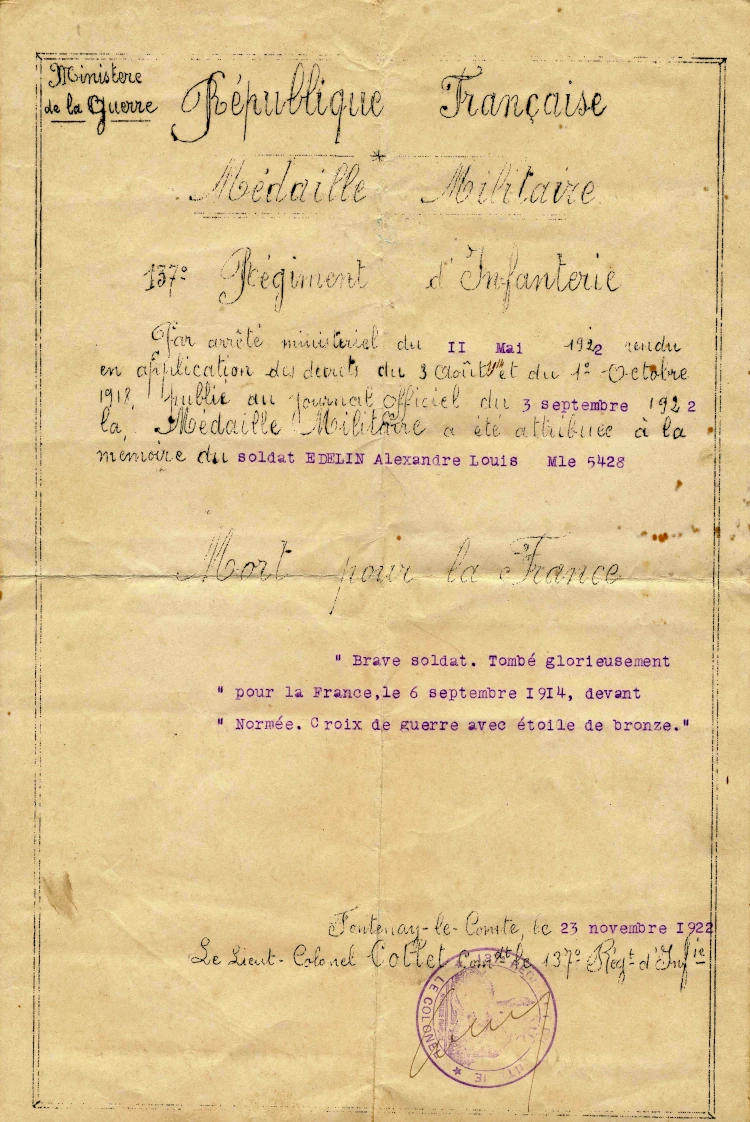 Ministere
de la Guerre
République Française
*
Médaille Militaire
137e Régiment d'Infanterie
Par arrêté ministériel du II Mai 1922 rendu
en application des décrets du 3 Août et du 1er Octobre
1918, publié au Journal Officiel du 3 septembre 1922
la, Médaille Militaire a été attribuée à la
mémoire du soldat EDELIN Alexandre Louis Mle 5428
Mort pour la France
" Brave soldat. Tombé glorieusement
" pour la France,le 6 septembre I9I4, devant
" Normée. Croix de guerre avec étoile de bronze."
Fontenay-le-Comte, le 23 novembre I922
Le Lieut-Colonel Collet Comdt le 137e Régt d'Infie
LE COLONEL